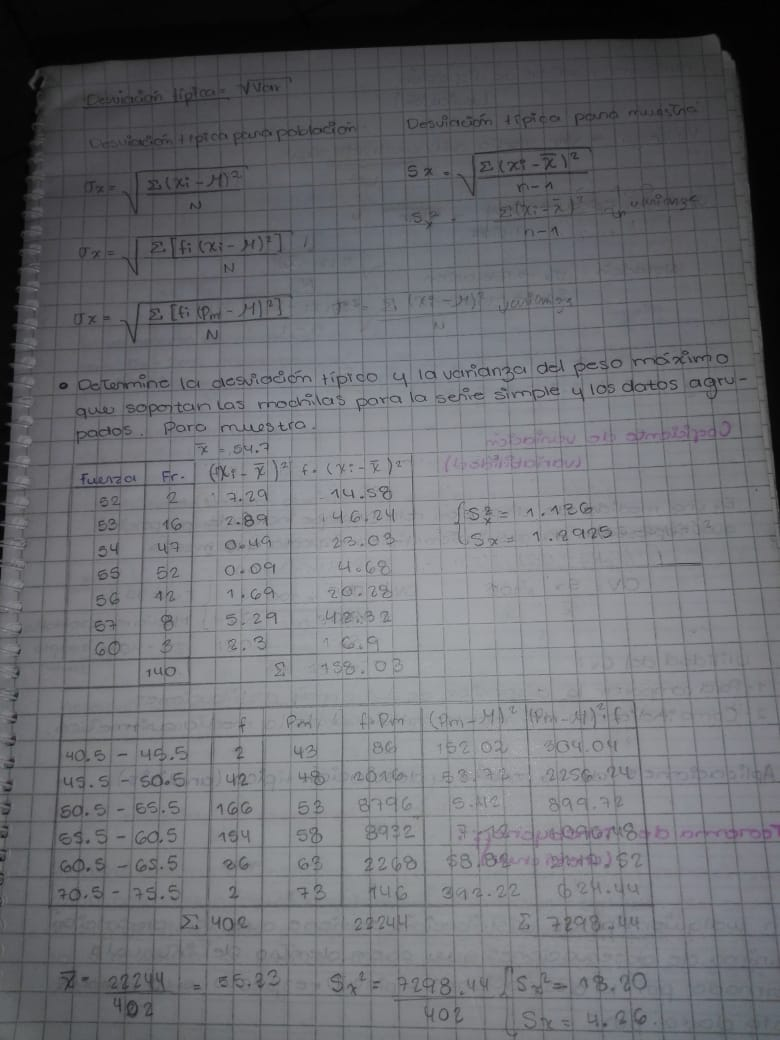 Desviación típica = √Var
Desviación típica para población
Desviación típica para muestra
σx = √ Σ(xi - M)² / N
Sx = √ Σ(xi - x̄)² / n-1
S²x = Σ(xi - x̄)² / n-1 varianza
σx = √ Σ[fi(xi - M)²] / N
σx = √ Σ[fi(Pm - M)²] / N
σ² = Σ(xi - M)² / N varianza
• Determine la desviación típica y la varianza del peso máximo
que soportan las mochilas para la serie simple y los datos agru-
pados. Para muestra.
x̄ = 54.7
Fuerza Fr. (xi - x̄)² f·(xi - x̄)²
52 2 7.29 14.58
53 16 2.89 46.24
54 47 0.49 23.03
55 52 0.09 4.68
56 12 1.69 20.28
57 8 5.29 42.32
60 3 2.3 6.9
140 Σ 158.03
S²x = 1.136
Sx = 1.2925
f Pm f·Pm (Pm - M)² (Pm - M)²·f
40.5 - 45.5 2 43 86 152.02 304.04
45.5 - 50.5 42 48 2016 53.72 2256.24
50.5 - 55.5 166 53 8796 5.42 899.72
55.5 - 60.5 154 58 8932
60.5 - 65.5 36 63 2268
70.5 - 75.5 2 73 146 392.22
Σ 402 22244 Σ 7298.44
x̄ = 22244 / 402 = 55.33
Sx² = 7298.44 / 402
Sx² = 18.20
Sx = 4.26